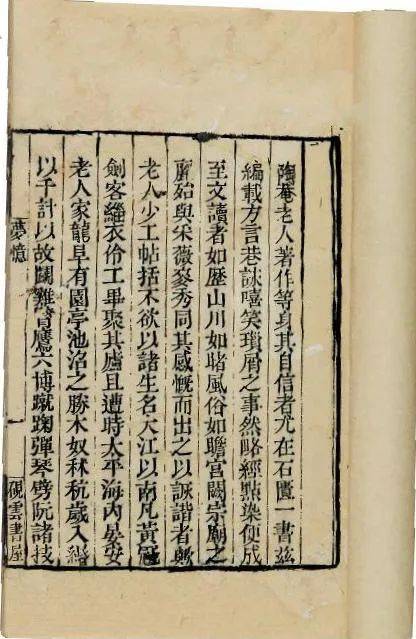 陶菴老人著作等身其自信者尤在石匱一書茲
編載方言巷詠嘻笑瑣屑之事然略經點染便成
至文讀者如歷山川如睹風俗如瞻宮闕宗廟之
麗殆與采薇麥秀同其感慨而出之以詼諧者歟
老人少工帖括不欲以諸生名大江以南凡黃冠
劍客緇衣伶工畢聚其廬且遭時太平海內晏安
老人家龍阜有園亭池沼之勝木奴秫秔歲入緡
以千計以故鬬雞臂鷹六博蹴踘彈琴劈阮諸技
夢憶 一 硯雲書屋